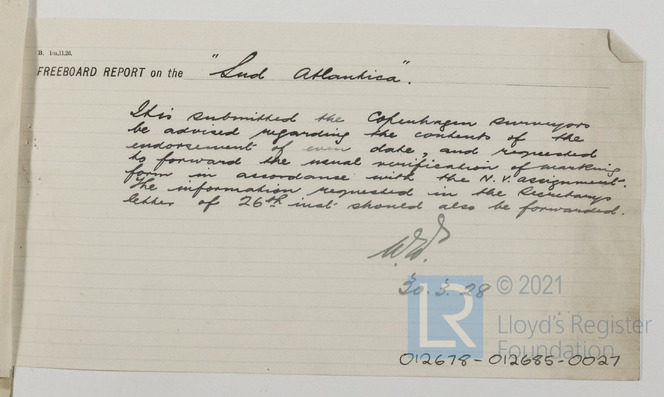 B. 1m,11,26.
FREEBOARD REPORT on the "Sud Atlantica".
It is submitted the Copenhagen surveyors
be advised regarding the contents of the
endorsement of even date, and requested
to forward the usual verification of marking
form in accordance with the N.V. assignment.
The information requested in the Secretary's
letter of 26th inst. should also be forwarded.
30.3.28
© 2021
LR
Lloyd's Register
Foundation
012678-012685-0027